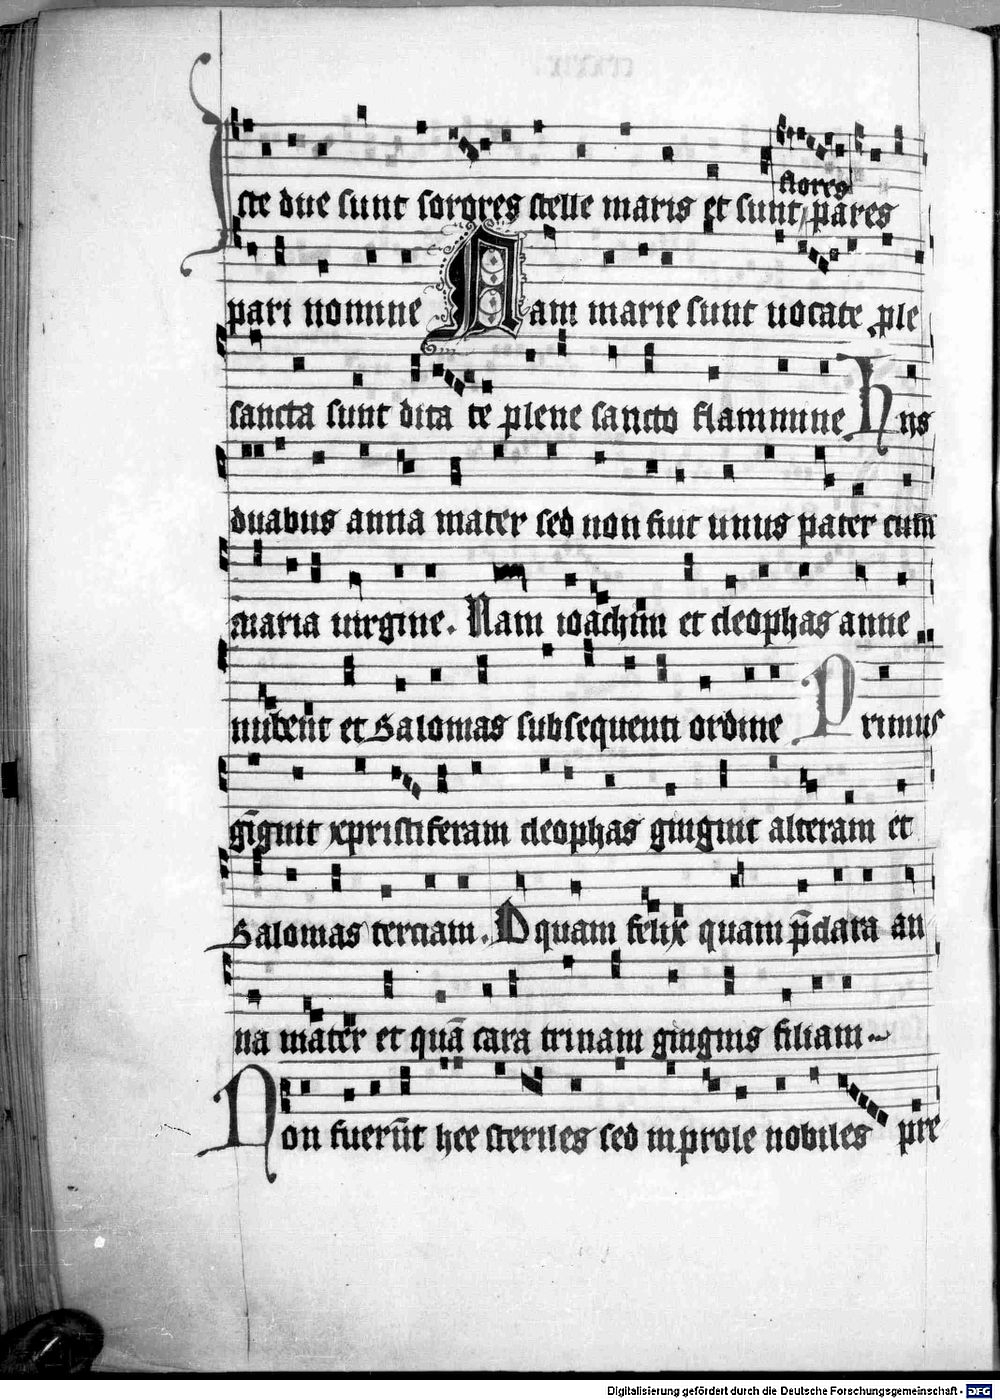 flores
Iste due sunt sorores stelle maris et sunt pares
pari nomine Nam marie sunt uocate ple
sancta sunt dita te plene sancto flammine Hiis
duabus anna mater sed non fiut unus pater cum
maria uirgine. Nam ioachim et cleophas anne
nubent et Salomas subsequenti ordine Primus
gīgnit xpristiferam cleophas gingnit alteram et
Salomas terciam. O quam felix quam p̄clara an
na mater et quā cara trinam gingnis filiam
Non fuerūt hee steriles sed in prole nobiles pre
Digitalisierung gefördert durch die Deutsche Forschungsgemeinschaft - DFG